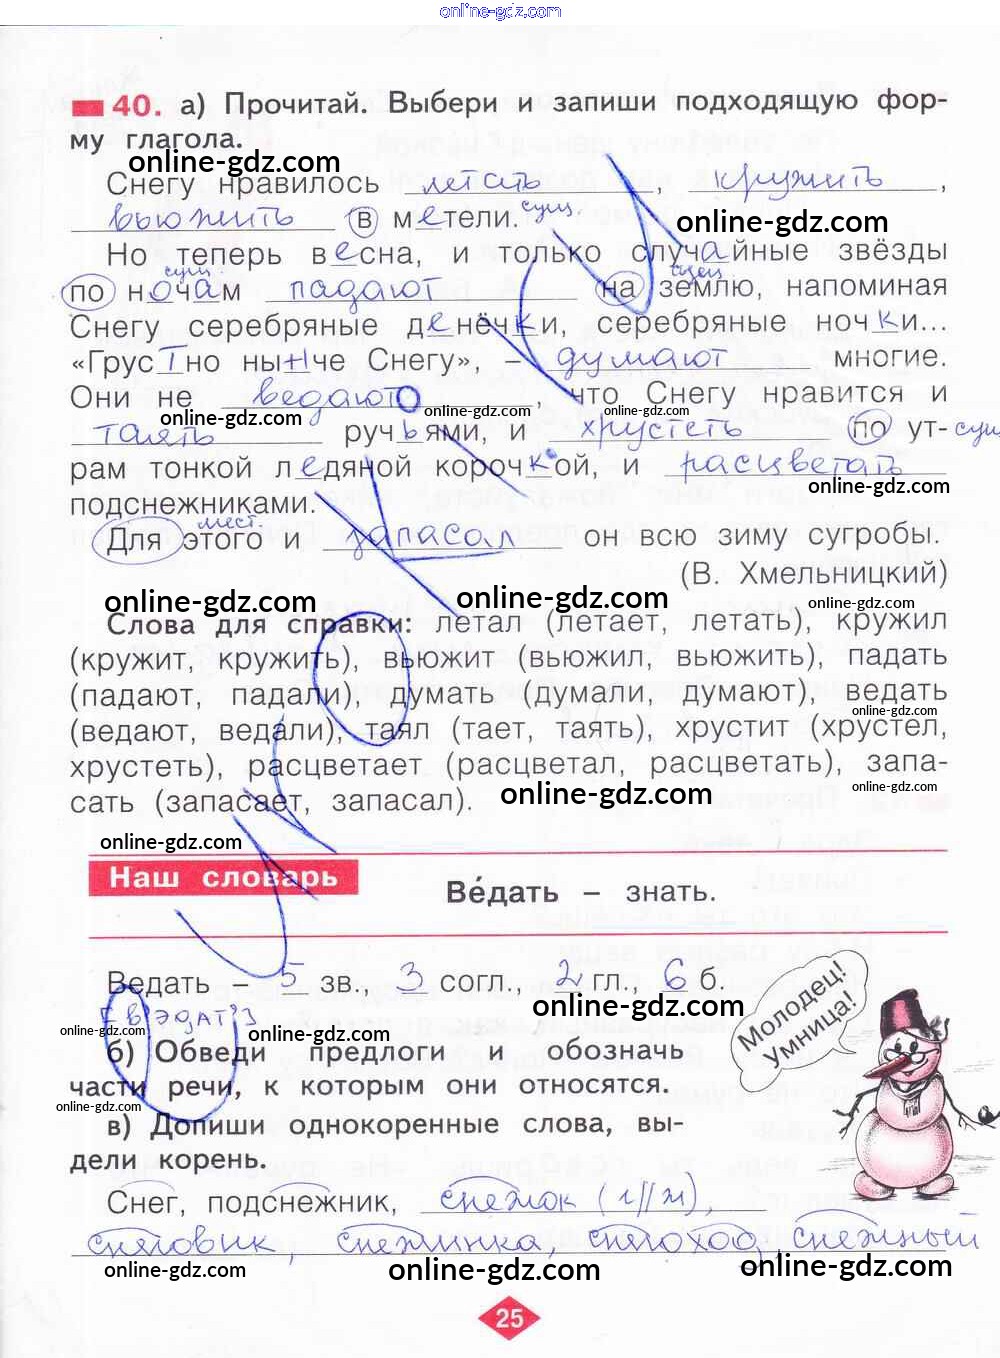 online-gdz.com
40. а) Прочитай. Выбери и запиши подходящую фор-
му глагола.
online-gdz.com
Снегу нравилось летать, кружить,
вьюжить в метели. сущ
online-gdz.com
Но теперь весна, и только случайные звёзды
сущ. сущ.
по ночам падают на землю, напоминая
Снегу серебряные денёчки, серебряные ночки...
«Грустно нынче Снегу», – думают многие.
Они не ведают, что Снегу нравится и
online-gdz.com online-gdz.com online-gdz.com
таять ручьями, и хрустеть по ут- сущ
рам тонкой ледяной корочкой, и расцветать
online-gdz.com
подснежниками.
мест.
Для этого и запасал он всю зиму сугробы.
(В. Хмельницкий)
online-gdz.com online-gdz.com online-gdz.com
Слова для справки: летал (летает, летать), кружил
(кружит, кружить), вьюжит (вьюжил, вьюжить), падать
(падают, падали), думать (думали, думают), ведать
online-gdz.com
(ведают, ведали), таял (тает, таять), хрустит (хрустел,
хрустеть), расцветает (расцветал, расцветать), запа-
сать (запасает, запасал).
online-gdz.com
online-gdz.com
Наш словарь
Ве́дать – знать.
Ведать – 5 зв., 3 согл., 2 гл., 6 б.
online-gdz.com
[В'ЭДАТ']
online-gdz.com online-gdz.com
Молодец!
Умница!
б) Обведи предлоги и обозначь
части речи, к которым они относятся.
online-gdz.com
в) Допиши однокоренные слова, вы-
дели корень.
Снег, подснежник, снежок (г//ж),
снеговик, снежинка, снегоход, снежный
online-gdz.com online-gdz.com online-gdz.com
25